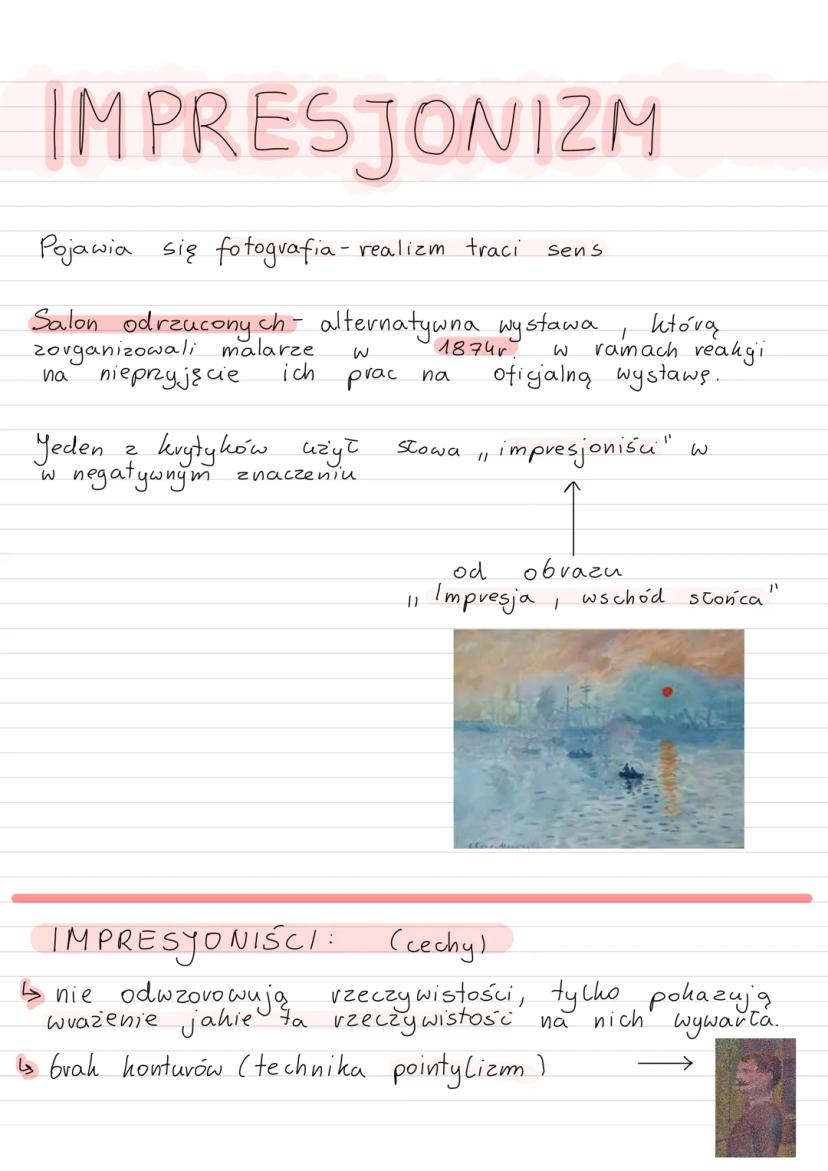 IMPRESJONIZM
Pojawia się fotografia - realizm traci sens
Salon odrzuconych - alternatywna wystawa, którą
zorganizowali malarze w 1874r w ramach reakcji
na nieprzyjęcie ich prac na oficjalną wystawę.
Jeden z krytyków użył słowa „impresjoniści" w
w negatywnym znaczeniu
od obrazu
„Impresja, wschód słońca"
IMPRESJONIŚCI: (cechy)
↳ nie odwzorowują rzeczywistości, tylko pokazują
wrażenie jakie ta rzeczywistość na nich wywarła.
↳ brak konturów (technika pointylizm)